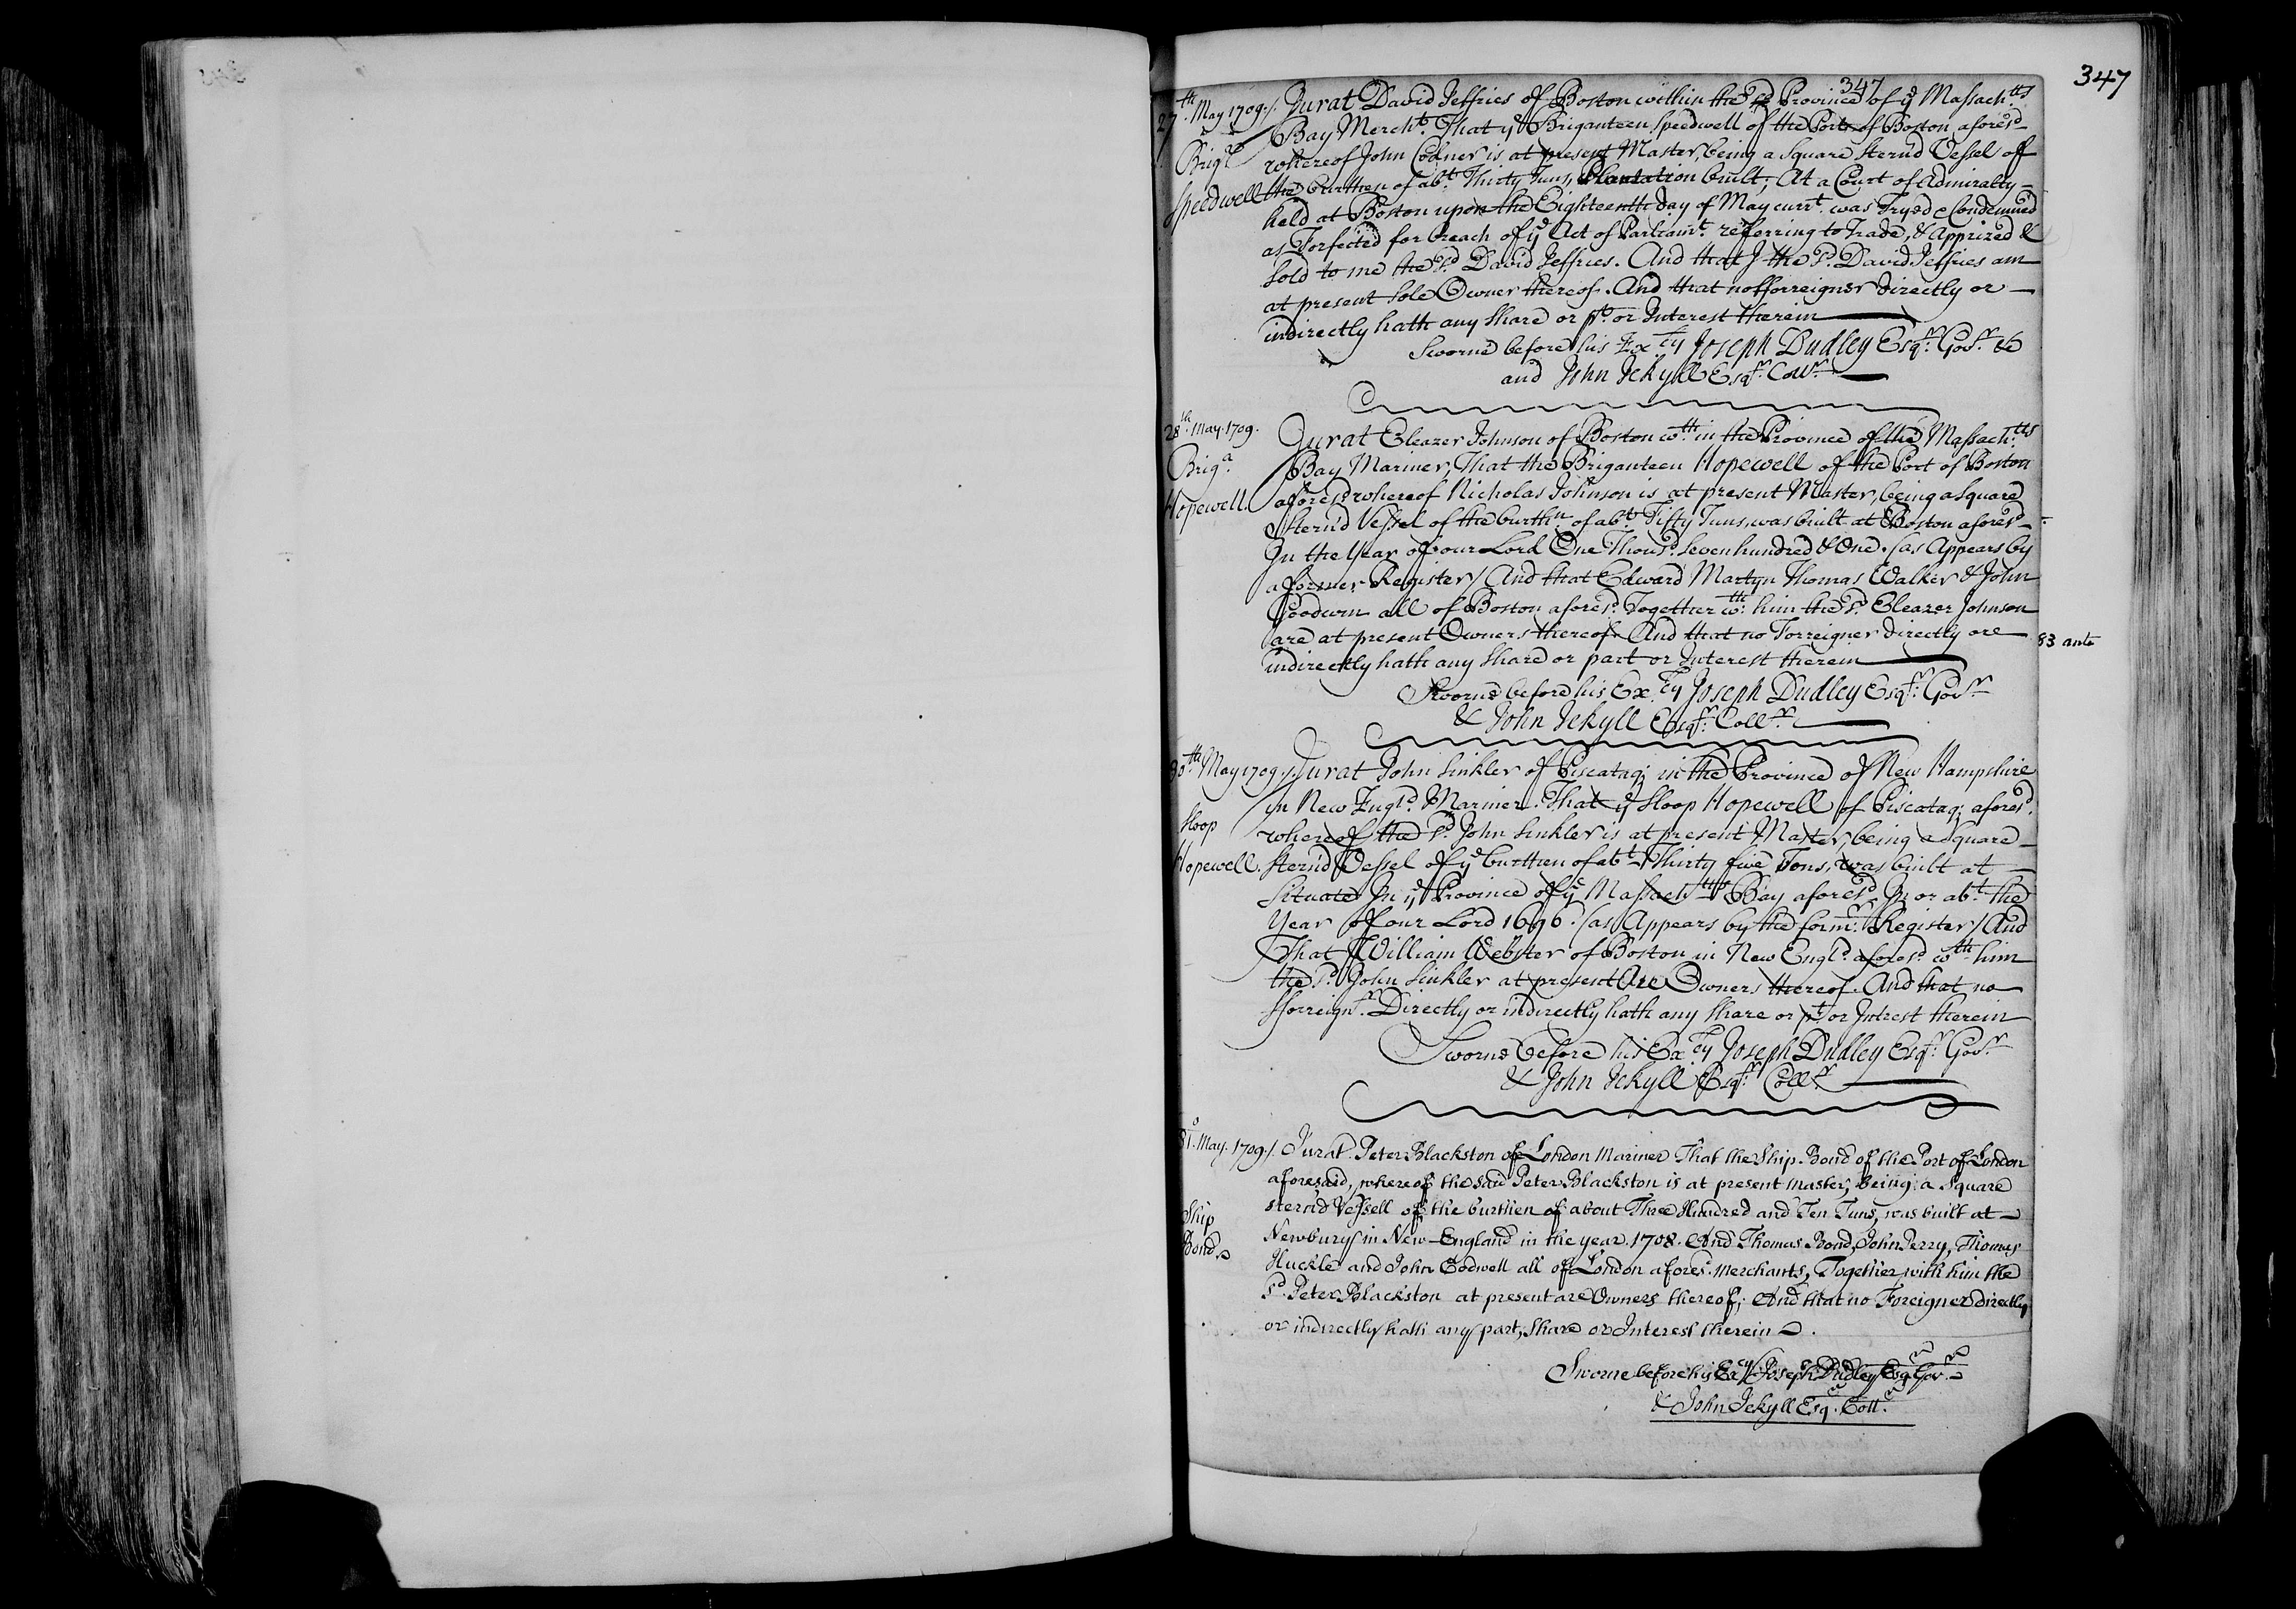 347
347
27th. May 1709/. Jurat David Jeffries of Boston within the sd Province of ye Massachtts
Bay Mercht. That ye Briganteen Speedwell of the Port of Boston aforesd
Brigtn whereof John Codner is at present Master, being a Square Sternd Vessel off
Speedwell the burthen of abt. Thirty Tuns, Plantation built; At a Court of Admiralty
held at Boston upon the Eighteenth day of May currt. was Tryed & Condemned
as Forfected for breach of ye Act of Parliamt. referring to Trade, & apprized &
Sold to me the sd. David Jeffries. And that I the sd. David Jeffries am
at present Sole Owner thereof. And that no fforreigner directly or
indirectly hath any Share or pt. or Interest therein
Sworne before his Exty Joseph Dudley Esqr. Govr. &c
and John Jekyll Esqr. Collr.
28th. May. 1709. Jurat Eleazer Johnson of Boston wth. in the Province of the Massachtts
Briga. Bay Mariner, That the Briganteen Hopewell of the Port of Boston
Hopewell. aforesd. whereof Nicholas Johnson is at present Master, being a Square
Stern'd Vessel of the burthn. of abt. Fifty Tuns, was built at Boston aforesd
In the Year of our Lord One Thousd. Seven hundred & One. (as Appears by
a former Register) And that Edward Martyn Thomas Walker & John
Goodwin all of Boston aforesd. Together wth. him the sd. Eleazer Johnson
are at present Owners thereof. And that no Forreigner directly ore
83 ante
indirectly hath any Share or part or Interest therein
Sworne before his Exty Joseph Dudley Esqr. Govr
& John Jekyll Esqr. Collr.
30th May 1709/. Jurat John Sinkler of Piscataq; in the Province of New Hampshire
in New Engld. Mariner. That ye Sloop Hopewell of Piscataq; aforesd.
Sloop whereof the sd. John Sinkler is at present Master, being a Square
Hopewell. Stern'd Vessel of ye burthen of abt Thirty five Tons, was built at
Situated In ye Province of ye Massachtts Bay aforesd. In or abt. the
Year of our Lord 1696. (as Appears by the formr. Register) And
That William Webster of Boston in New Engld. aforesd. wth him
the sd. John Sinkler at present Are Owners thereof. And that no
fforreignr. Directly or indirectly hath any Share or pt or Intrest therein
Sworne before his Exty Joseph Dudley Esqr. Govr
& John Jekyll Esqr. Collr
31o. May. 1709/. Jurat. Peter Blackston of London Mariner That the Ship Bond of the Port of London
aforesaid, whereof the said Peter Blackston is at present Master, being a Square
sternd Vessell of the burthen of about Three Hundred and Ten Tuns, was built at
Ship Newbury in New England in the year 1708. And Thomas Bond, John Perry, Thomas
Bond Huckle and John Eodwell all of London afores.d Merchants, Together with him the
sd. Peter Blackston at present are Owners thereof; And that no Foreigner directly
or indirectly hath any part, Share or Interest therein.
Sworne before his Excy Joseph Dudley Esqr Govr.
& John Jekyll Esqr. Collr.